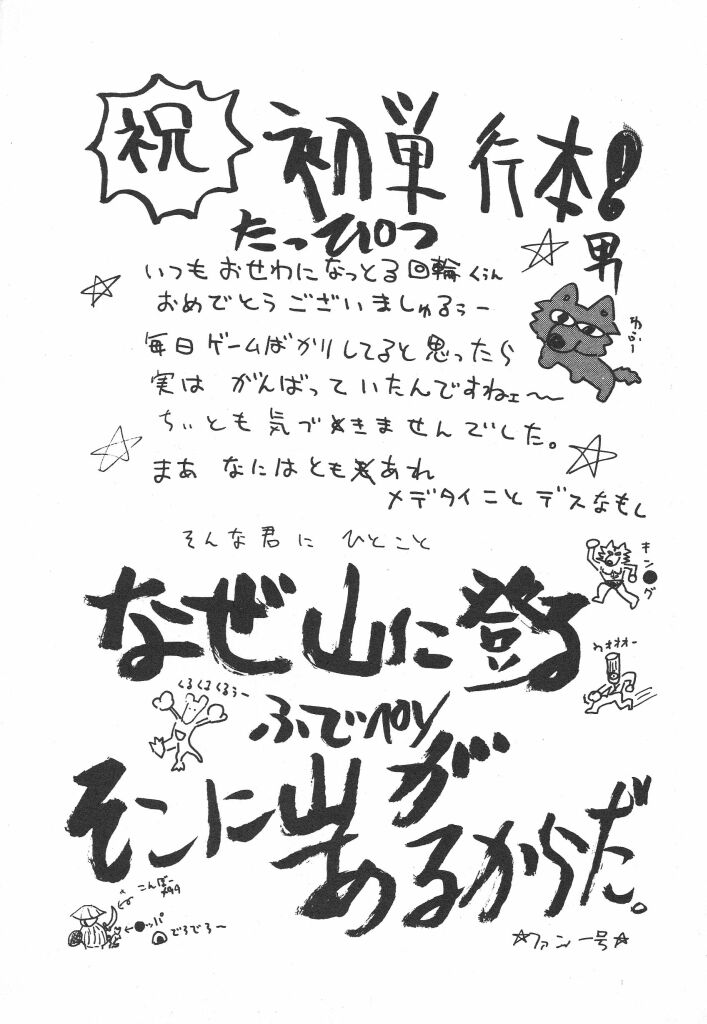 祝
初単行本!
たっぴつ
男
いつもおせわになっとる回輪くぅん
おめでとうございましゅるぅー
毎日ゲームばかりしてると思ったら
実は がんばって いたんですねェ〜〜
ちぃとも気づきませんでした。
まあ なにはともあれ
メデタイこと デスなもし
そんな君に ひとこと
なぜ山に登る
キン●グ
わオオオー
くるくるくるぅー
ふでペン
そこに山が
あるからだ。
こんぼー
←●ッパ
でろでろ〜
☆ファン一号☆